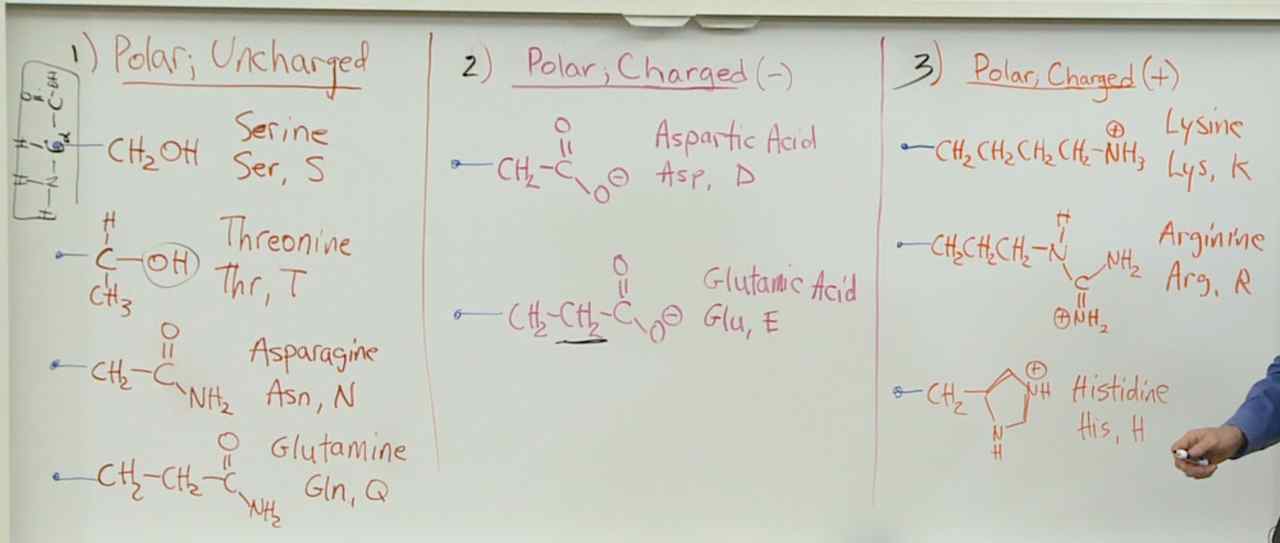 1) Polar; Uncharged
H-N-Cα-C-OH
H H O
CH₂OH
Serine
Ser, S
H
C-OH
CH₃
Threonine
Thr, T
O
CH₂-C
NH₂
Asparagine
Asn, N
O
CH₂-CH₂-C
NH₂
Glutamine
Gln, Q
2) Polar; Charged (-)
O
CH₂-C
O⊖
Aspartic Acid
Asp, D
O
CH₂-CH₂-C
O⊖
Glutamic Acid
Glu, E
3) Polar; Charged (+)
⊕
CH₂CH₂CH₂CH₂-NH₃
Lysine
Lys, K
H
CH₂CH₂CH₂-N
C NH₂
⊕NH₂
Arginine
Arg, R
⊕
CH₂ NH
N
H
Histidine
His, H